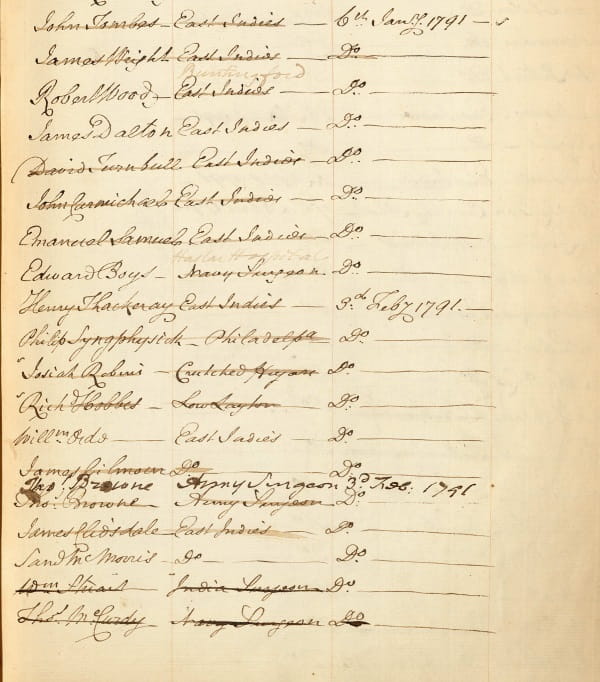 John Tombes East Indies — 6th Jany. 1791 — s
James Wright East Indies Do.
Huntingford
Robert Wood — East Indies — Do.
James Dalton East Indies — Do.
David Turnbull East Indies — Do.
John Carmichael East Indies — Do.
Emanuel Samuel East Indies — Do.
Haslar Hospital
Edward Boys — Navy Surgeon Do.
Henry Thackeray East Indies — 3rd Feby 1791 —
Philip Syng physick — Philadelpa Do.
Josiah Robins — Crutched Do.
Richd Hobbes — Low Layton — Do.
Willm East Indies — Do.
James Gilmour Do. Do.
Thos. Browne Army Surgeon 3d Feb: 1791
Thos. Browne Army Surgeon Do.
James Clidsdale — East Indies Do.
Morris — Do Do.
Wm Stuart — India Surgeon Do.
Thos. McCurdy — Navy Surgeon Do.